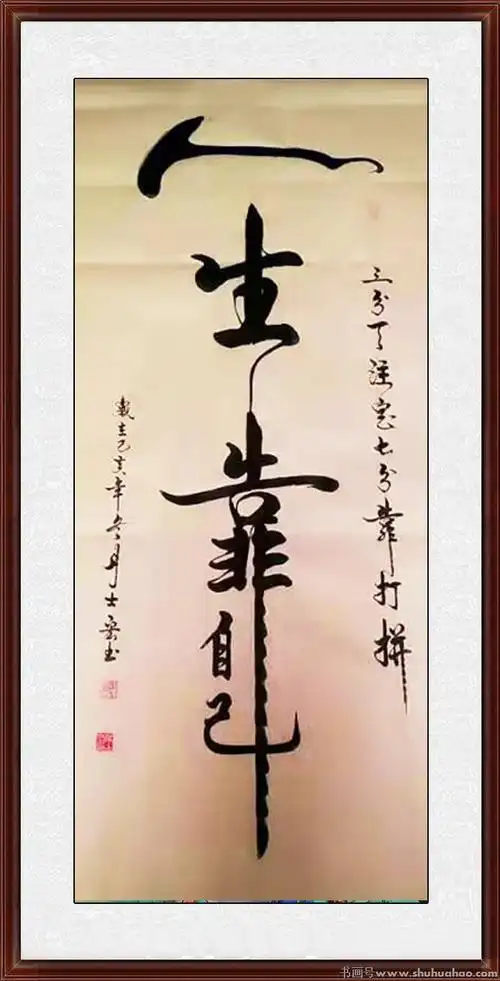 三分天注定七分靠打拼
人生靠自己
歲在己亥年月士书
书画号www.shuhuahao.com